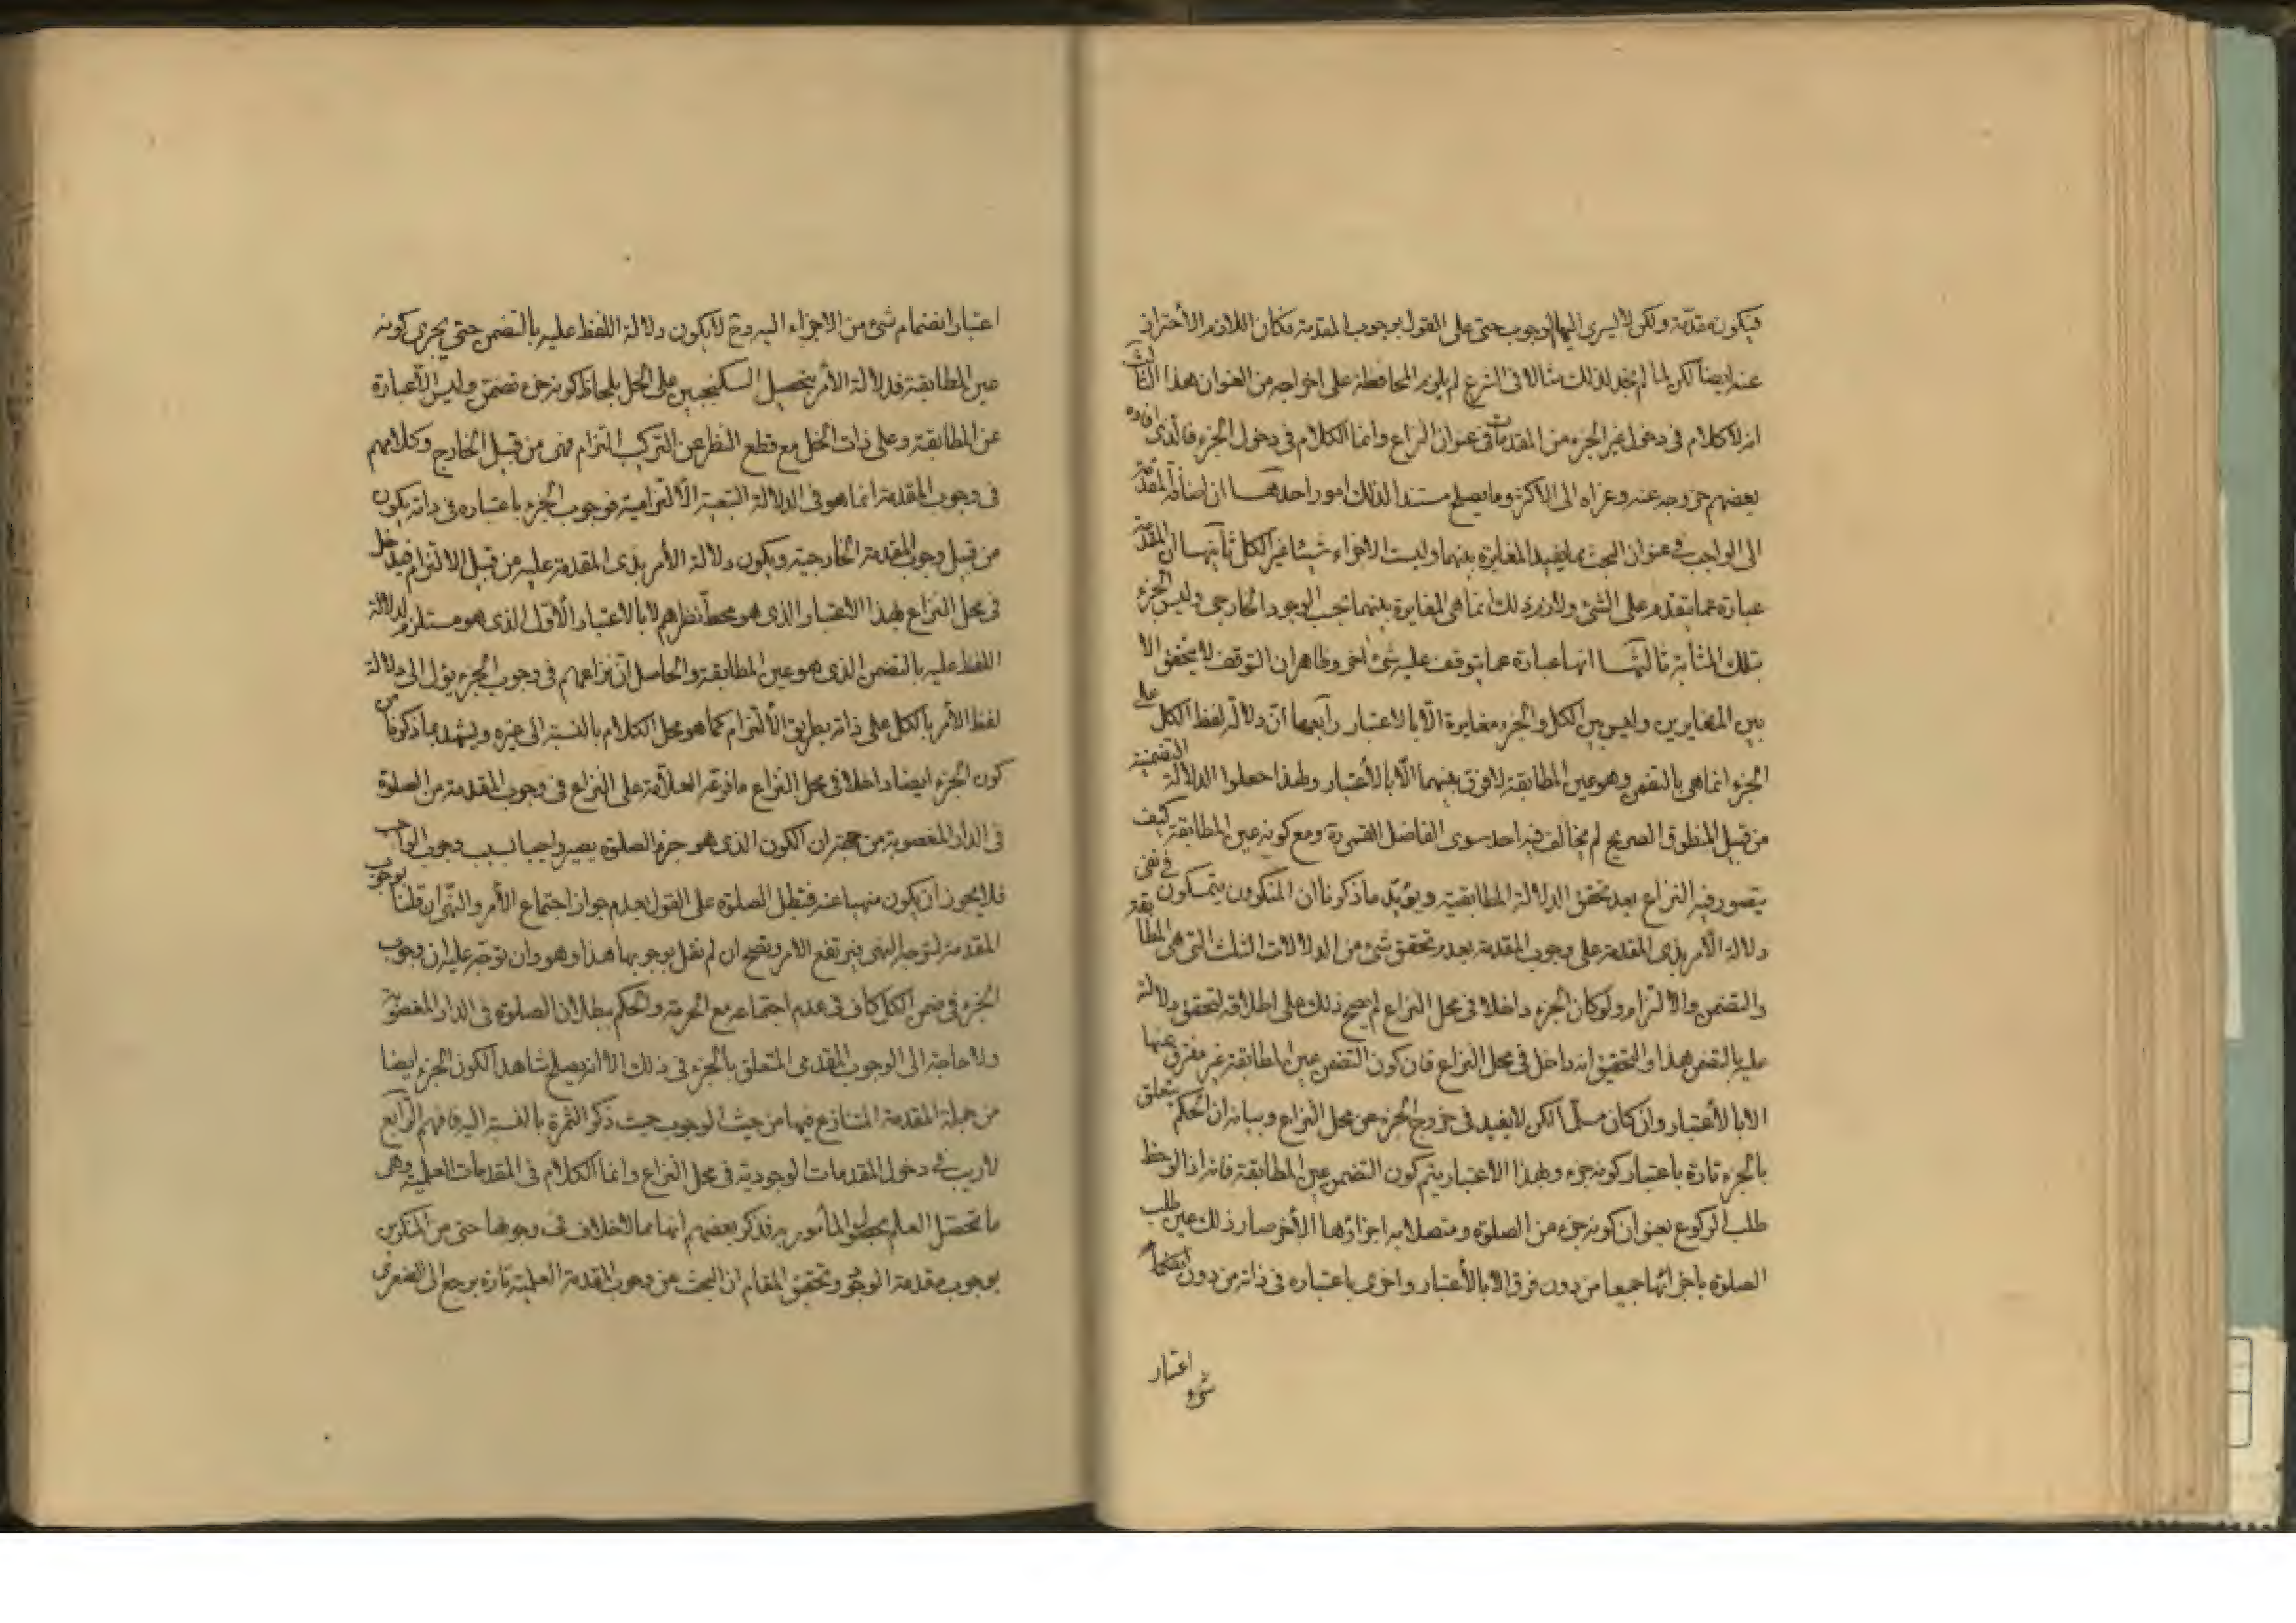 فيكون مقدمة ولكن لا يسرى اليها الوجوب حتى على القول بوجوب المقدمة فكان اللازم الأحتراز
عنه ايضا لكن لما لم نجد لذلك مثالا فى الشرع لم يلزم المحافظة على اخراجه من العنوان هذا الثالث
انه لا كلام فى دخول غير الجزء من المقدمات فى عنوان النزاع وانما الكلام فى دخول الجزء فالذى افاده
بعضهم خروجه عنه وعزاه الى الاكثر وما يصلح مستندا لذلك امور احدها ان اضافة المقدمة
الى الواجب فى عنوان البحث مما يفيد المغايرة بينهما وليست الاجزاء شيئا غير الكل ثانيها ان المقدمة
عبارة عما يتقدم على الشئ ولازم ذلك انما هى المغايرة بينهما بحسب الوجود الخارجى وليس الجزء
بتلك المثابة ثالثها انها عبارة عما يتوقف عليه شئ اخر وظاهر ان التوقف لا يتحقق الا
بين المتغايرين وليس بين الكل والجزء مغايرة الّا بالاعتبار رابعها انّ دلالة لفظ الكل على
الجزء انما هى بالتضمن وهو عين المطابقة لا فرق بينهما الّا بالأعتبار ولهذا جعلوا الدلالة التضمنية
من قبيل المنطوق الصريح لم يخالف فيه احد سوى الفاضل القمى ره ومع كونه عين المطابقة كيف
يتصور فيه النزاع بعد تحقق الدلالة المطابقية ويؤيّد ما ذكرنا ان المنكرين يتمسكون فى نفى
دلالة الأمر بذى المقدمة على وجوب المقدمة بعدم تحقق شئ من الدلالات الثلث التى هى المطابقة
والتضمن والالتزام ولو كان الجزء داخلا فى محل النزاع لم يصح ذلك على اطلاقه لتحقق دلالة
عليه بالتضمن هذا والتحقيق انه داخل فى محل النزاع فان كون التضمن عين المطابقة غير مفترق عنها
الا بالأعتبار وان كان مسلّما لكن لا يفيد فى خروج الجزء عن محل النزاع وبيانه ان الحكم يتعلق
بالجزء تارة باعتبار كونه جزء وبهذا الاعتبار يتم كون التضمن عين المطابقة فانه اذا لوحظ
طلب الركوع بعنوان كونه جزء من الصلوة ومتصلا به اجزاؤها الأخر صار ذلك عين طلب
الصلوة باجزائها جميعا من دون فرق الا بالأعتبار واخرى باعتباره فى ذاته من دون انضمام
اعتبار
شئ
اعتبار انضمام شئ من الاجزاء اليه وح لا يكون دلالة اللفظ عليه بالتضمن حتى يجرى كونه
عين المطابقة فدلالة الأمر بتحصيل السكنجبين على الخل بلحاظ كونه جزء تضمّن وليس الّا عبارة
عن المطابقة وعلى ذات الخل مع قطع النظر عن التركيب التزام فهى من قبيل الخارج وكلامهم
فى وجوب المقدمة انما هو فى الدلالة التبعية الألتزامية فوجوب الجزء باعتباره فى ذاته يكون
من قبيل وجوب المقدمة الخارجية ويكون دلالة الأمر بذى المقدمة عليه من قبيل الالتزام فيدخل
فى محل النزاع بهذا الاعتبار الذى هو محطّ نظرهم لا بالاعتبار الأوّل الذى هو مستلزم لدلالة
اللفظ عليه بالتضمن الذى هو عين المطابقة والحاصل انّ نزاعهم فى وجوب الجزء يؤل الى دلالة
لفظ الأمر بالكل على ذاته بطريق الألتزام كما هو محل الكلام بالنسبة الى غيره ويشهد بما ذكرنا من
كون الجزء ايضا داخلا فى محل النزاع ما فرعه العلامة على النزاع فى وجوب المقدمة من الصلوة
فى الدار المغصوبة من جهة ان الكون الذى هو جزء الصلوة يصير واجبا بسبب وجوب الواجب
فلا يجوز ان يكون منهيا عنه فتبطل الصلوة على القول بعدم جواز اجتماع الأمر والنهى ان قلنا بوجوب
المقدمة لتوجه النهى فيرتفع الامر وتصح ان لم نقل بوجوبها هذا وهو وان توجّه عليه ان وجوب
الجزء فى ضمن الكل كاف فى عدم اجتماعه مع الحرمة والحكم ببطلان الصلوة فى الدار المغصوبة
ولا حاجة الى الوجوب المقدمى المتعلق بالجزء فى ذلك الا انه يصلح شاهدا لكون الجزء ايضا
من جملة المقدمة المتنازع فيها من حيث الوجوب حيث ذكر الثمرة بالنسبة اليه فافهم الرّابع
لا ريب فى دخول المقدمات الوجودية فى محل النزاع وانما الكلام فى المقدمات العلمية وهى
ما تحصّل العلم بحصول المأمور به فذكر بعضهم انها مما لا خلاف فى وجوبها حتى من المنكرين
بوجوب مقدمة الوجود وتحقيق المقام ان البحث عن وجوب المقدمة العلمية تارة يرجع الى الصغرى